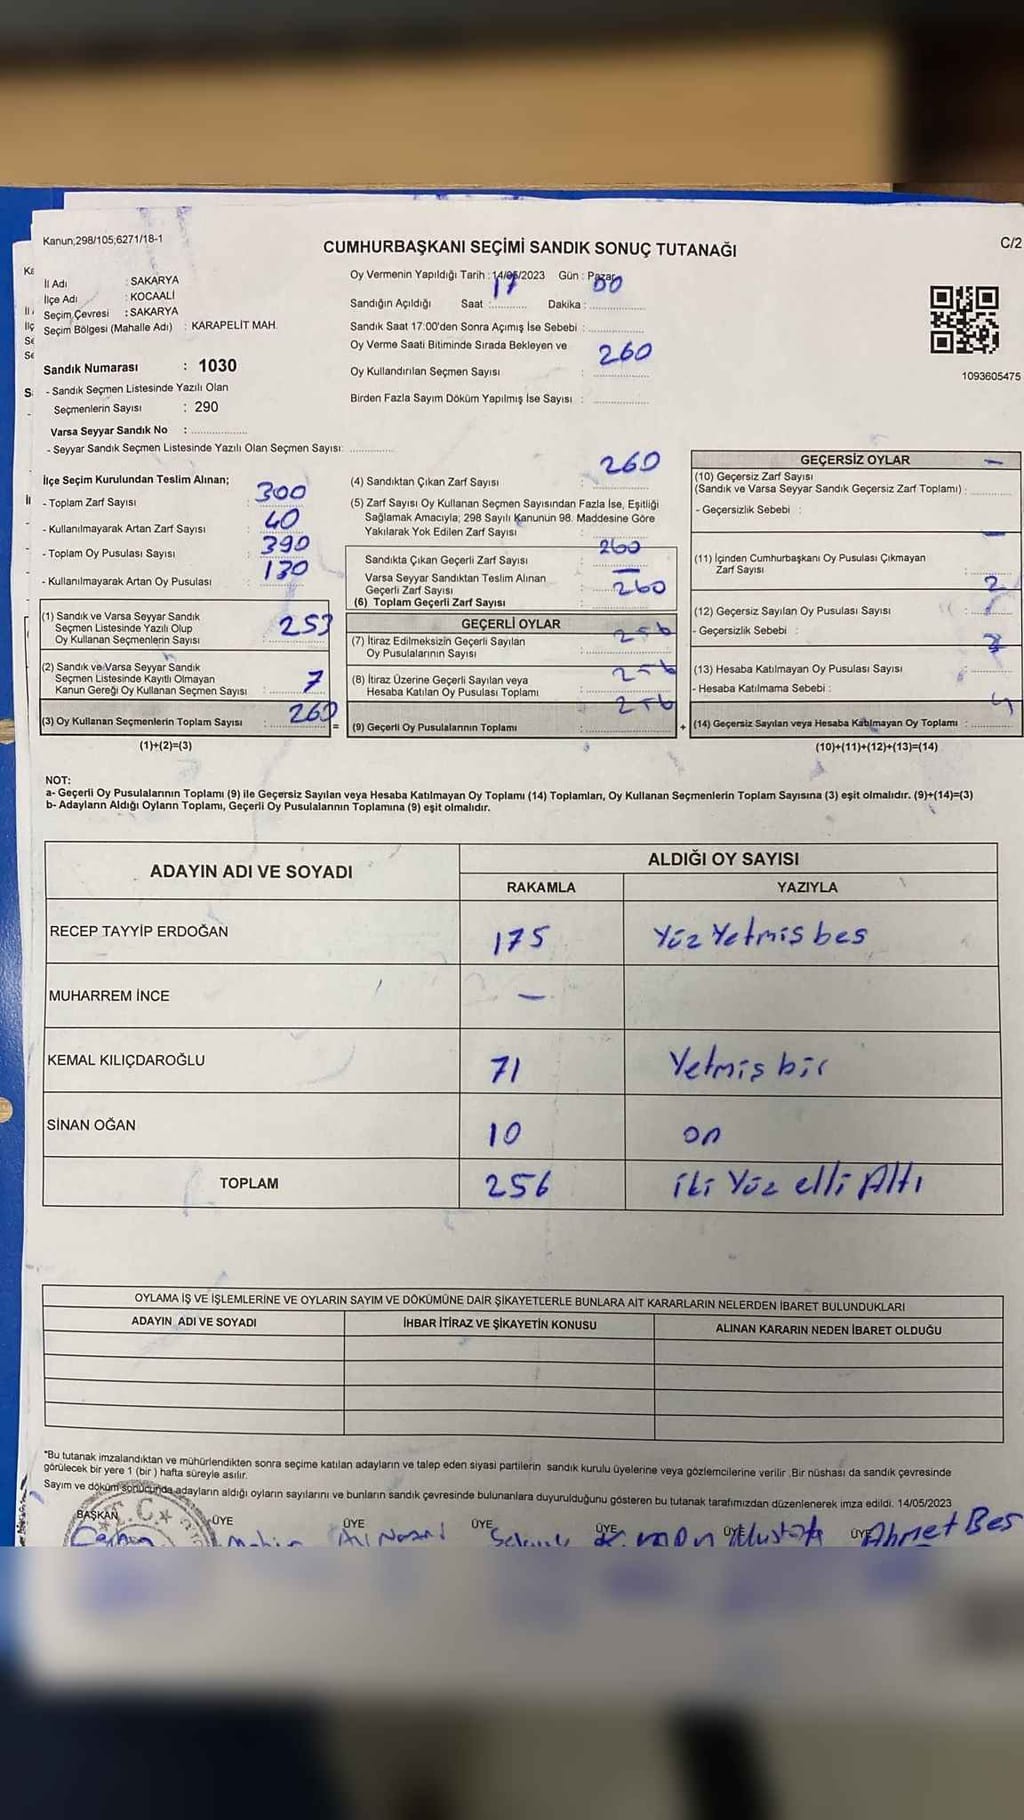 Kanun;298/105;6271/18-1
C/2
CUMHURBAŞKANI SEÇİMİ SANDIK SONUÇ TUTANAĞI
İl Adı : SAKARYA
İlçe Adı : KOCAALİ
Seçim Çevresi : SAKARYA
Seçim Bölgesi (Mahalle Adı) : KARAPELİT MAH.
Sandık Numarası : 1030
- Sandık Seçmen Listesinde Yazılı Olan
Seçmenlerin Sayısı : 290
Varsa Seyyar Sandık No :
- Seyyar Sandık Seçmen Listesinde Yazılı Olan Seçmen Sayısı:
Oy Vermenin Yapıldığı Tarih : 14/05/2023 Gün : Pazar
Sandığın Açıldığı Saat : 17 Dakika : 00
Sandık Saat 17:00'den Sonra Açımış İse Sebebi :
Oy Verme Saati Bitiminde Sırada Bekleyen ve
Oy Kullandırılan Seçmen Sayısı : 260
Birden Fazla Sayım Döküm Yapılmış İse Sayısı :
1093605475
İlçe Seçim Kurulundan Teslim Alınan;
- Toplam Zarf Sayısı : 300
- Kullanılmayarak Artan Zarf Sayısı : 40
- Toplam Oy Pusulası Sayısı : 390
- Kullanılmayarak Artan Oy Pusulası : 130
(1) Sandık ve Varsa Seyyar Sandık
Seçmen Listesinde Yazılı Olup
Oy Kullanan Seçmenlerin Sayısı : 253
(2) Sandık ve Varsa Seyyar Sandık
Seçmen Listesinde Kayıtlı Olmayan
Kanun Gereği Oy Kullanan Seçmen Sayısı : 7
(3) Oy Kullanan Seçmenlerin Toplam Sayısı : 260 =
(1)+(2)=(3)
(4) Sandıktan Çıkan Zarf Sayısı : 260
(5) Zarf Sayısı Oy Kullanan Seçmen Sayısından Fazla İse, Eşitliği
Sağlamak Amacıyla; 298 Sayılı Kanunun 98. Maddesine Göre
Yakılarak Yok Edilen Zarf Sayısı :
Sandıkta Çıkan Geçerli Zarf Sayısı : 260
Varsa Seyyar Sandıktan Teslim Alınan
Geçerli Zarf Sayısı : —
(6) Toplam Geçerli Zarf Sayısı : 260
GEÇERLİ OYLAR
(7) İtiraz Edilmeksizin Geçerli Sayılan
Oy Pusulalarının Sayısı : 256
(8) İtiraz Üzerine Geçerli Sayılan veya
Hesaba Katılan Oy Pusulası Toplamı : 256
(9) Geçerli Oy Pusulalarının Toplamı : 256 +
GEÇERSİZ OYLAR
(10) Geçersiz Zarf Sayısı
(Sandık ve Varsa Seyyar Sandık Geçersiz Zarf Toplamı) : —
- Geçersizlik Sebebi :
(11) İçinden Cumhurbaşkanı Oy Pusulası Çıkmayan
Zarf Sayısı : —
(12) Geçersiz Sayılan Oy Pusulası Sayısı : 2
- Geçersizlik Sebebi :
(13) Hesaba Katılmayan Oy Pusulası Sayısı :
- Hesaba Katılmama Sebebi :
(14) Geçersiz Sayılan veya Hesaba Katılmayan Oy Toplamı : 4
(10)+(11)+(12)+(13)=(14)
NOT:
a- Geçerli Oy Pusulalarının Toplamı (9) ile Geçersiz Sayılan veya Hesaba Katılmayan Oy Toplamı (14) Toplamları, Oy Kullanan Seçmenlerin Toplam Sayısına (3) eşit olmalıdır. (9)+(14)=(3)
b- Adayların Aldığı Oyların Toplamı, Geçerli Oy Pusulalarının Toplamına (9) eşit olmalıdır.
ADAYIN ADI VE SOYADI ALDIĞI OY SAYISI
RAKAMLA YAZIYLA
RECEP TAYYİP ERDOĞAN 175 Yüz Yetmis bes
MUHARREM İNCE —
KEMAL KILIÇDAROĞLU 71 Yetmiş bir
SİNAN OĞAN 10 on
TOPLAM 256 iki Yüz elli Altı
OYLAMA İŞ VE İŞLEMLERİNE VE OYLARIN SAYIM VE DÖKÜMÜNE DAİR ŞİKAYETLERLE BUNLARA AİT KARARLARIN NELERDEN İBARET BULUNDUKLARI
ADAYIN ADI VE SOYADI İHBAR İTİRAZ VE ŞİKAYETİN KONUSU ALINAN KARARIN NEDEN İBARET OLDUĞU
*Bu tutanak imzalandıktan ve mühürlendikten sonra seçime katılan adayların ve talep eden siyasi partilerin sandık kurulu üyelerine veya gözlemcilerine verilir .Bir nüshası da sandık çevresinde
görülecek bir yere 1 (bir ) hafta süreyle asılır.
Sayım ve döküm sonucunda adayların aldığı oyların sayılarını ve bunların sandık çevresinde bulunanlara duyurulduğunu gösteren bu tutanak tarafımızdan düzenlenerek imza edildi. 14/05/2023
BAŞKAN ÜYE ÜYE ÜYE ÜYE ÜYE ÜYE
T.C. Mustafa Ahmet Bes